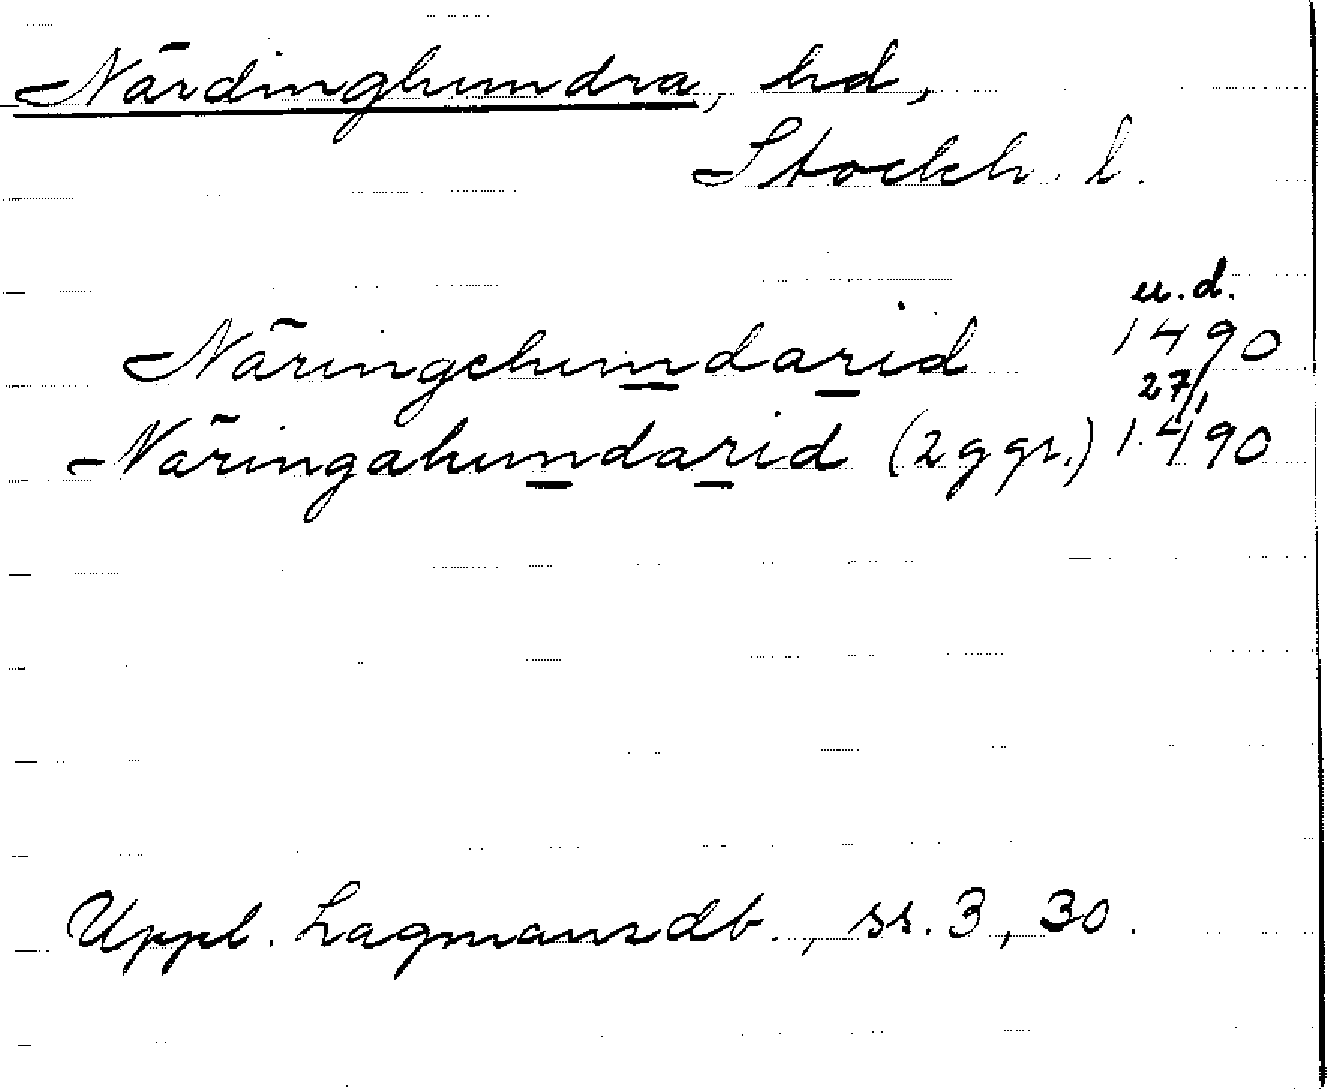 Närdinghundra, hd,
Stockh. l.
u.d.
Näringehundarid 1490
27/1
Näringahundarid (2 ggr.) 1490
Uppl. Lagmansdb., ss. 3, 30.